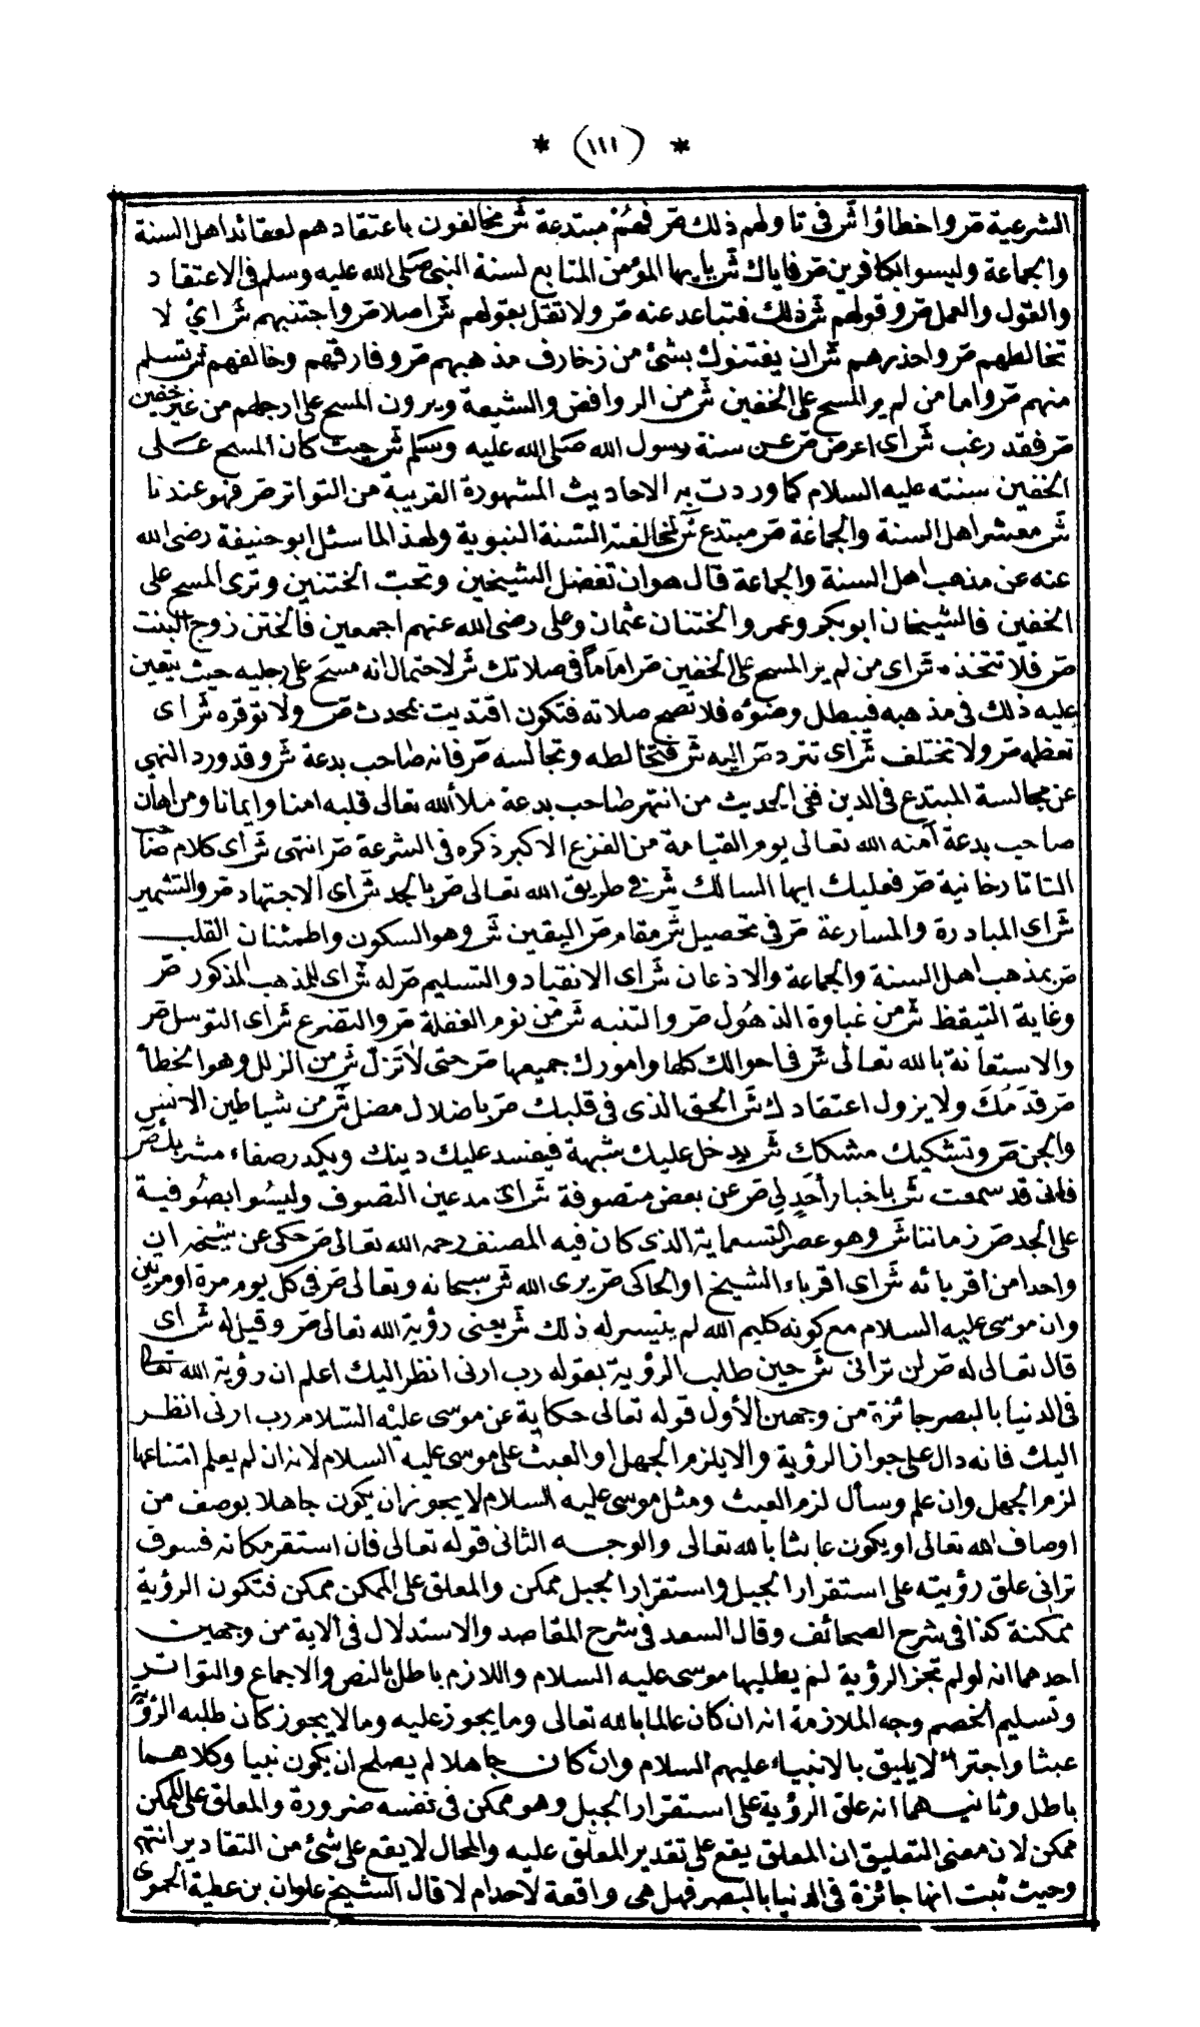 * (١١١) *
الشرعية صر واخطاؤا شر فى تاولهم ذلك صر فهم مبتدعة شر مخالفون باعتقادهم لعقائد اهل السنة
والجماعة وليسوا بكافرين صر فاياك شر يا ايها المؤمن المتابع لسنة النبى صلى الله عليه وسلم فى الاعتقاد
والقول والعمل صر وقولهم شر ذلك فتباعد عنه صر ولا تقل بقولهم شر اصلا صر واجتنبهم شر اى لا
تخالطهم صر واحذرهم شر ان يفتنوك بشئ من زخارف مذهبهم صر وفارقهم وخالفهم شر تسلم
منهم صر واما من لم ير المسح على الخفين شر من الروافض والشيعة ويرون المسح على ارجلهم من غير خفين
صر فقد رغب شر اى اعرض صر عن سنة رسول الله صلى الله عليه وسلم شر حيث كان المسح على
الخفين سنته عليه السلام كما وردت به الاحاديث المشهورة القريبة من التواتر صر فهو عندنا
شر معشر اهل السنة والجماعة صر مبتدع شر لمخالفته السنة النبوية ولهذا لما سئل ابو حنيفة رضى الله
عنه عن مذهب اهل السنة والجماعة قال هو ان تفضل الشيخين وتحب الختنين وترى المسح على
الخفين فالشيخان ابو بكر وعمر والختنان عثمان وعلى رضى الله عنهم اجمعين فالختن زوج البنت
صر فلا تتخذه شر اى من لم ير المسح على الخفين صر اماماً فى صلاتك شر لاحتمال انه مسح على رجليه حيث يتعين
عليه ذلك فى مذهبه فيبطل وضوءه فلا تصح صلاته فتكون اقتديت بمحدث صر ولا توقره شر اى
تعظمه صر ولا تختلف شر اى تتردد صر اليه شر فتخالطه وتجالسه صر فانه صاحب بدعة شر وقد ورد النهى
عن مجالسة المبتدع فى الدين ففى الحديث من انتهر صاحب بدعة ملأ الله تعالى قلبه امنا وايمانا ومن اهان
صاحب بدعة آمنه الله تعالى يوم القيامة من الفزع الاكبر ذكره فى الشرعة صر انتهى شر اى كلام صاحب
التاتارخانية صر فعليك ايها السالك شر فى طريق الله تعالى صر بالجد شر اى الاجتهاد صر والتشمير
شر اى المبادرة والمسارعة صر فى تحصيل شر مقام صر اليقين شر وهو السكون واطمئنان القلب
صر بمذهب اهل السنة والجماعة والاذعان شر اى الانقياد والتسليم صر له شر اى للمذهب المذكور صر
وغاية التيقظ شر من غباوة الذهول صر والتنبه شر من نوم الغفلة صر والتضرع شر اى التوسل صر
والاستعانة بالله تعالى شر فى احوالك كلها وامورك جميعها صر حتى لا تزل شر من الزلل وهو الخطأ
صر قدمك ولا يزول اعتقادك شر الحق الذى فى قلبك صر باضلال مضل شر من شياطين الانس
والجن صر وتشكيك مشكك شر يدخل عليك شبهة فيفسد عليك دينك ويكدر صفاء مشربك صر
فانى قد سمعت شر باخبار أحد لى صر عن بعض متصوفة شر اى مدعين التصوف وليسوا بصوفية
على الجد صر زماننا شر وهو عصر التسعماية الذى كان فيه المصنف رحمه الله تعالى صر حكى عن شيخه ان
واحدا من اقربائه شر اى اقرباء الشيخ او الحاكى صر يرى الله شر سبحانه وتعالى صر فى كل يوم مرة او مرتين
وان موسى عليه السلام مع كونه كليم الله لم يتيسر له ذلك شر يعنى رؤية الله تعالى صر وقيل له شر اى
قال تعالى له صر لن ترانى شر حين طلب الرؤية بقوله رب ارنى انظر اليك اعلم ان رؤية الله تعالى
فى الدنيا بالبصر جائزة من وجهين الأول قوله تعالى حكاية عن موسى عليه السلام رب ارنى انظر
اليك فانه دال على جواز الرؤية والا يلزم الجهل او العبث على موسى عليه السلام لانه ان لم يعلم امتناعها
لزم الجهل وان علم وسأل لزم العبث ومثل موسى عليه السلام لا يجوز ان يكون جاهلا بوصف من
اوصاف الله تعالى او يكون عابثا بالله تعالى والوجه الثانى قوله تعالى فان استقر مكانه فسوف
ترانى علق رؤيته على استقرار الجبل واستقرار الجبل ممكن والمعلق على الممكن ممكن فتكون الرؤية
ممكنة كذا فى شرح الصحائف وقال السعد فى شرح المقاصد والاستدلال فى الاية من وجهين
احدهما انه لو لم تجز الرؤية لم يطلبها موسى عليه السلام واللازم باطل بالنص والاجماع والتواتر
وتسليم الخصم وجه الملازمة انه ان كان عالما بالله تعالى وما يجوز عليه وما لا يجوز كان طلبه الرؤية
عبثا واجتراء لا يليق بالانبياء عليهم السلام وان كان جاهلا لم يصلح ان يكون نبيا وكلاهما
باطل وثانيهما انه علق الرؤية على استقرار الجبل وهو ممكن فى نفسه ضرورة والمعلق على الممكن
ممكن لان معنى التعليق ان المعلق يقع على تقدير المعلق عليه والمحال لا يقع على شئ من التقادير انتهى
وحيث ثبت انها جائزة فى الدنيا بالبصر فهل هى واقعة لاحد ام لا قال الشيخ علوان بن عطية الحموى